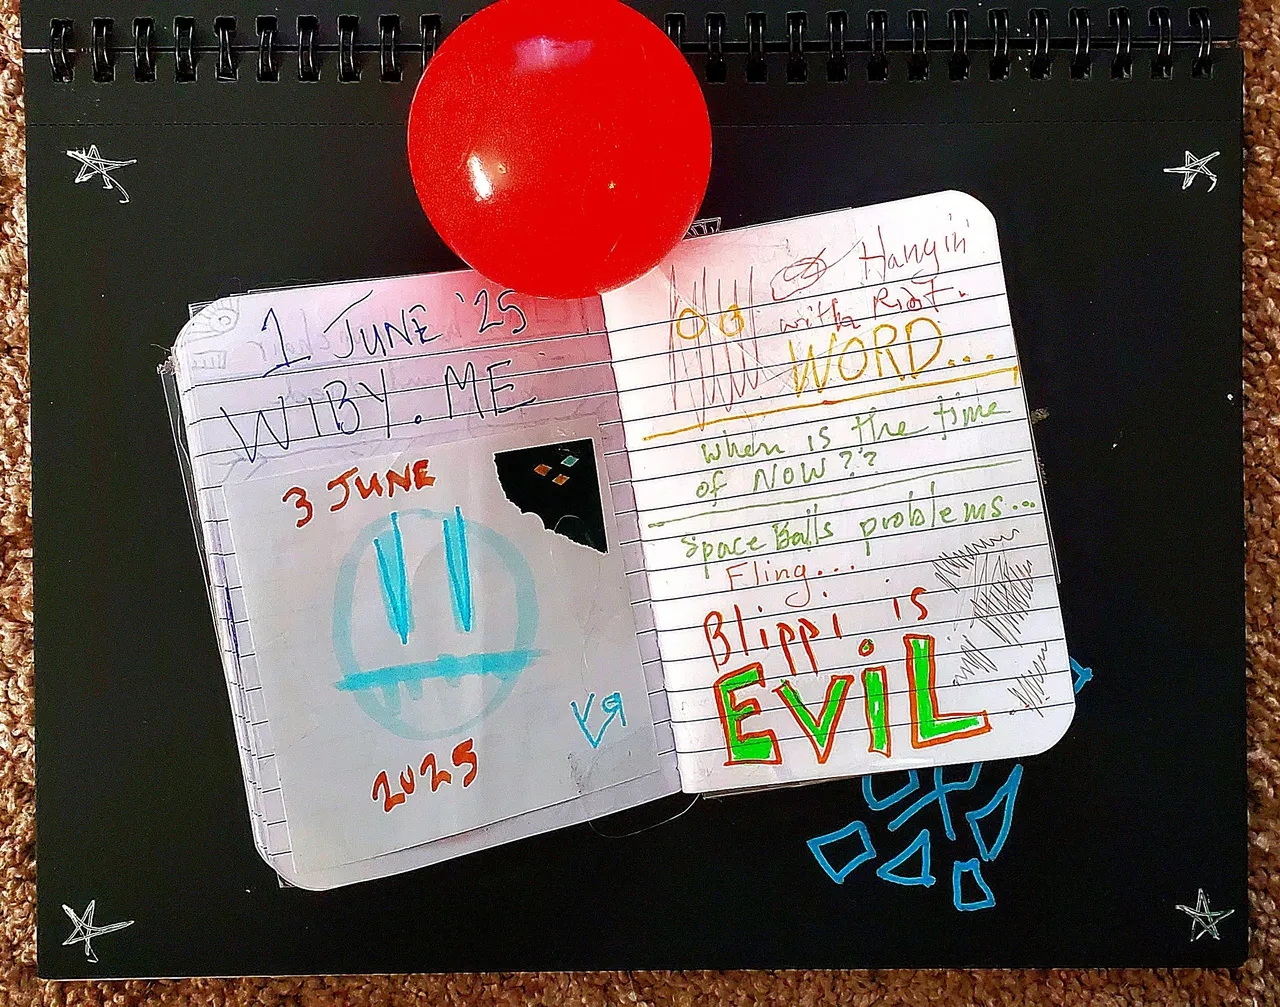 1 JUNE '25
WIBY.ME
3 JUNE
2025
Hangin'
with
WORD...
when is the time
of NOW??
space Balls problems...
Fling...
Blippi is
EVIL